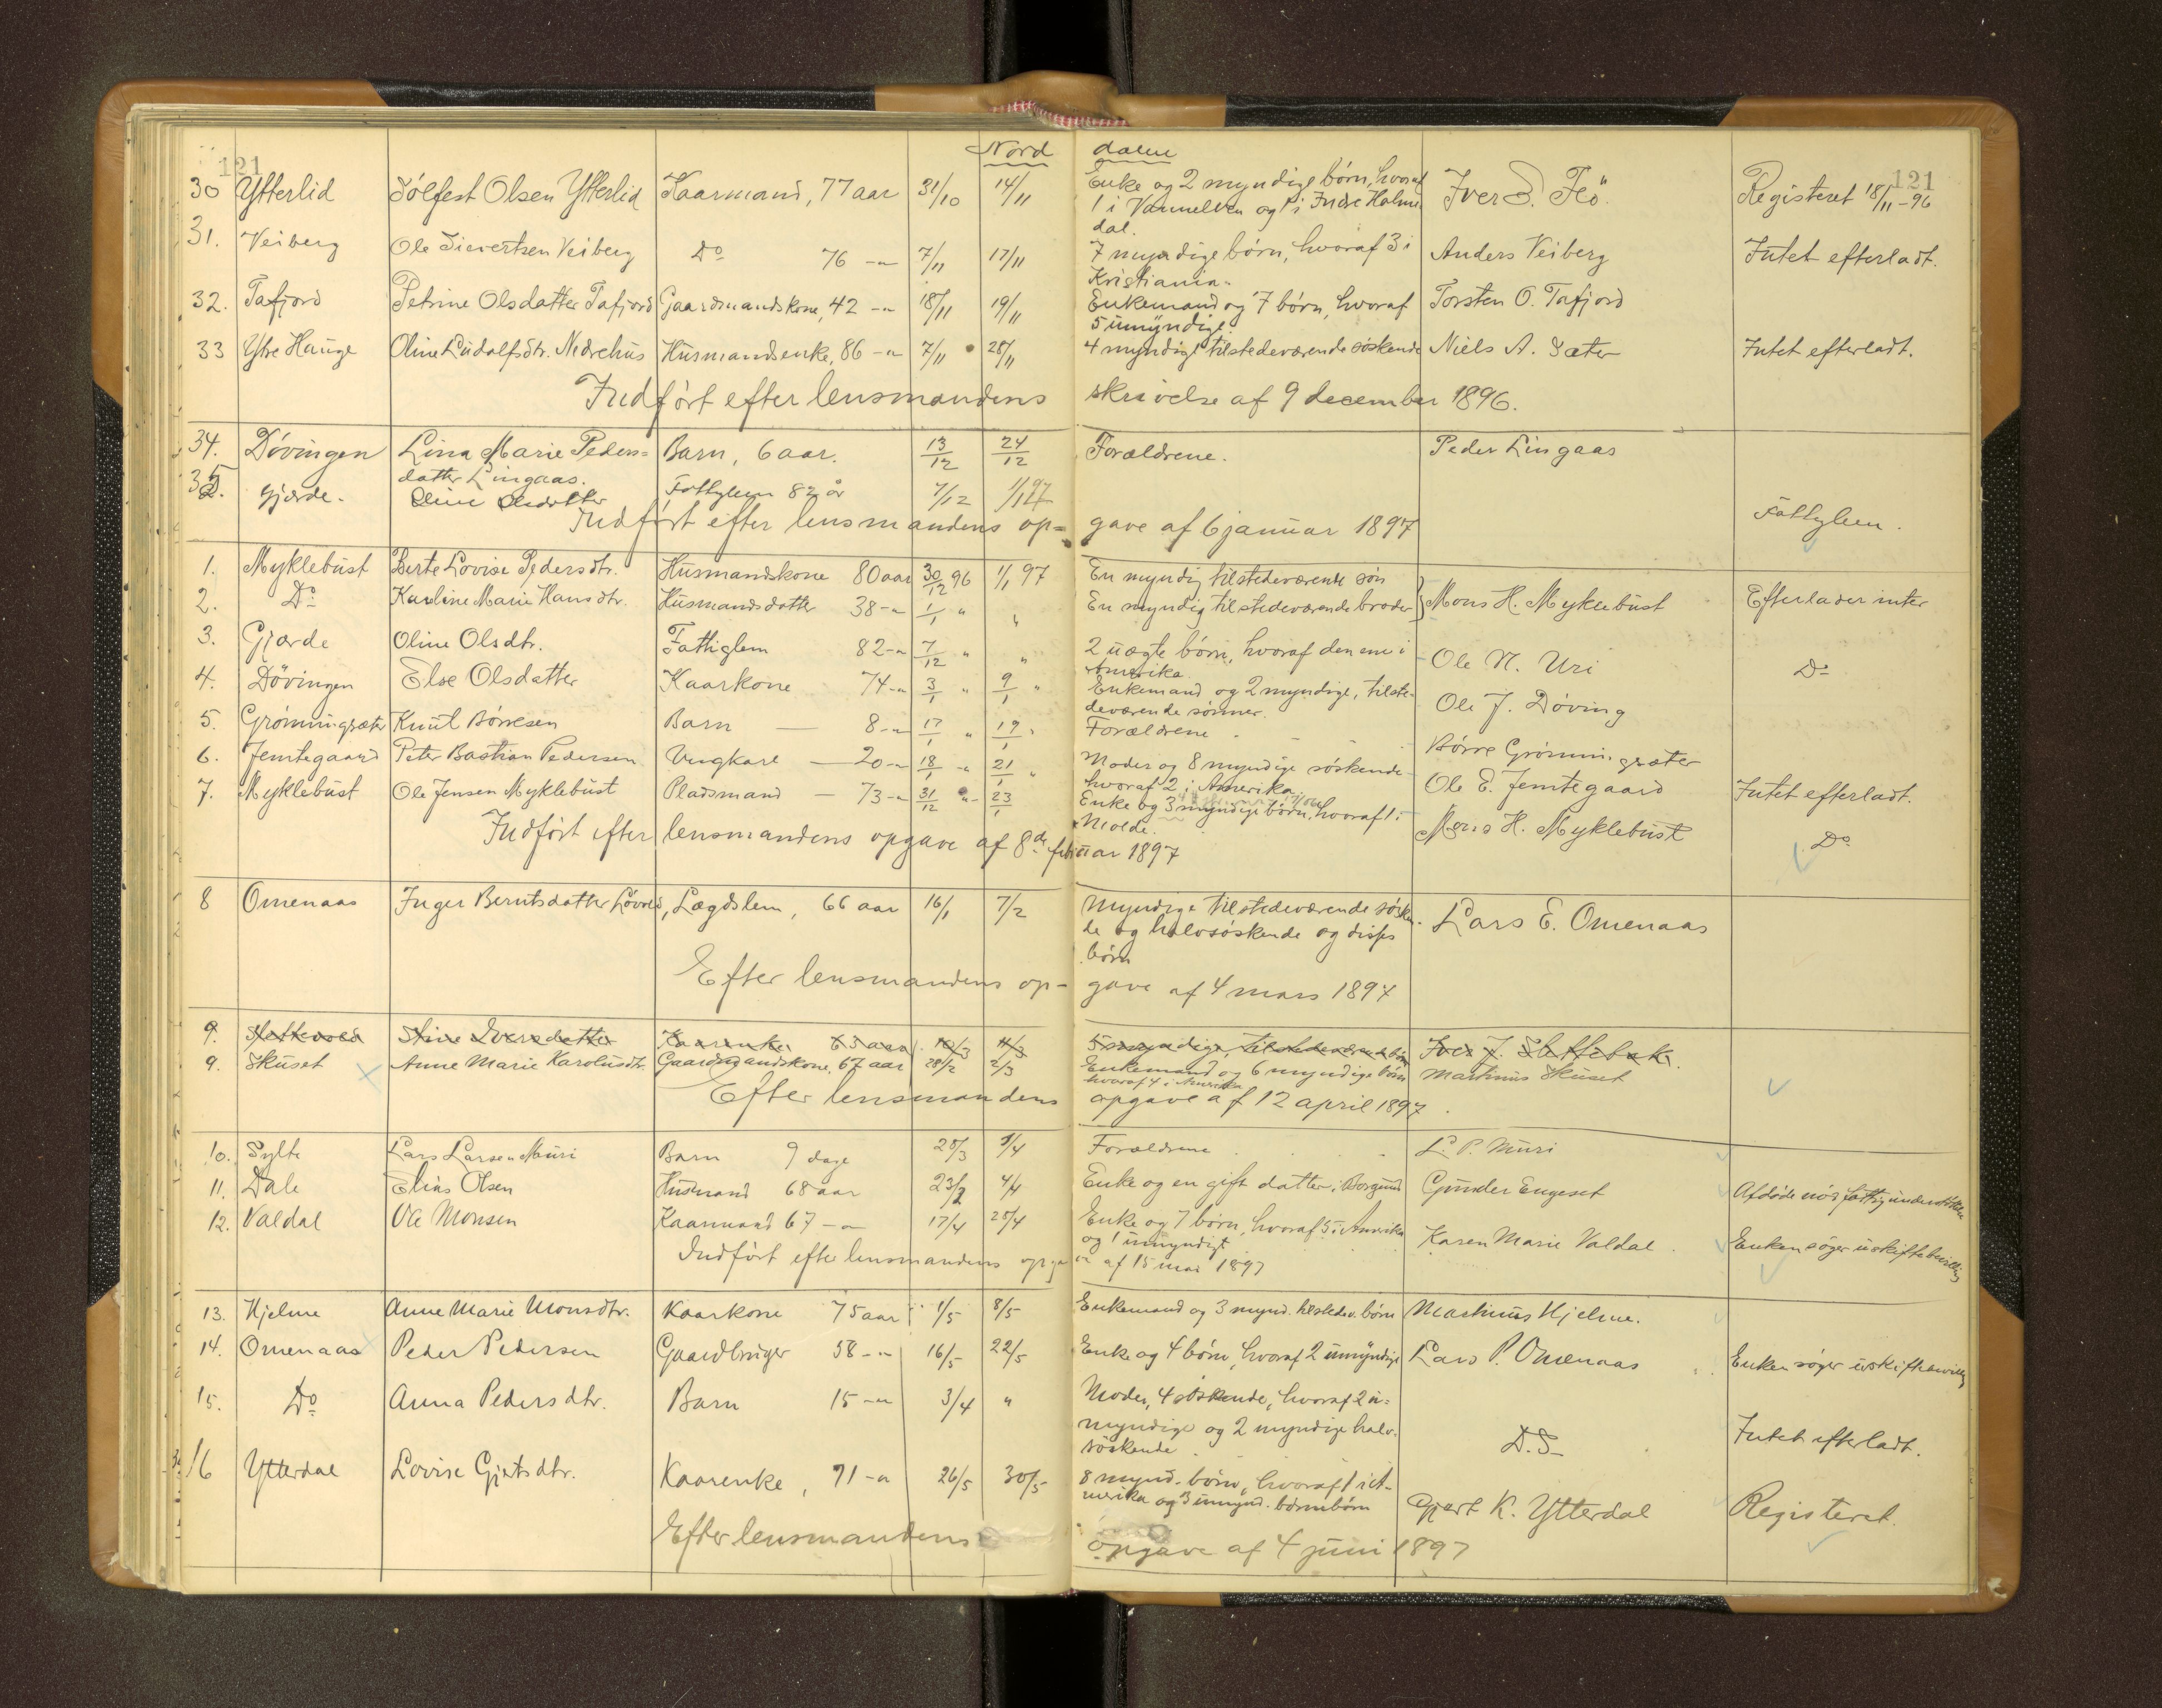 121
121
Nord dalen
30 Ytterlid Sölfest Olsen Ytterlid Kaarmand, 77 aar 31/10 14/11 Enke og 2 myndige børn, hvoraf Iver S. Flö. Registeret 18/11-96
1 i Vannelven og 1 i Indre Holme
dal.
31. Veiberg Ole Sievertsen Veiberg Do 76 -"- 7/11 17/11 7 myndige børn, hvoraf 3 i Anders Veiberg Intet efterladt.
Kristiania.
32. Tafjord Petrine Olsdatter Tafjord Gaardmandskone, 42 -"- 18/11 19/11 Enkemand og 7 børn, hvoraf Torsten O. Tafjord
5 umyndige.
33 Ytre Hauge Oline Ludolfsdtr. Nedrehus Husmandsenke, 86 -"- 7/11 28/11 4 myndige tilstedeværende søskende Niels A. Sæter Intet efterladt.
Indført efter lensmandens skrivelse af 9 december 1896.
34. Døvingen Lina Marie Peders= Barn, 6 aar. 13/12 24/12 Forældrene. Peder Lingaas
datter Lingaas.
35. Gjærde. Oline Olsdatter Fattiglem 82 år 7/12 1/1 97 Fattiglem.
Indført efter lensmandens op= gave af 6 januar 1897
1. Myklebust Berte Lovise Pedersdtr. Husmandskone 80 aar 30/12 96 1/1 97 En myndig tilstedeværende søn
2. Do Karline Marie Hansdtr. Husmandsdatter 38 -"- 1/1 " " En myndig tilstedeværende broder } Mons H. Myklebust Efterlader intet
3. Gjærde Oline Olsdtr. Fattiglem 82 -"- 7/12 " " 2 uægte børn, hvoraf den ene i Ole N. Uri Do
Amerika.
4. Dövingen Else Olsdatter Kaarkone 74 -"- 3/1 " 9/1 " Enkemand og 2 myndige, tilste- Ole J. Döving
deværende sønner.
5. Grønningsæter Knut Børresen Barn — 8 -"- 17/1 " 19/1 " Forældrene Børre Grønningsæter
6. Jemtegaard Peter Bastian Pedersen Ungkarl — 20 -"- 18/1 " 21/1 " Moder og 8 myndige søskende Ole E. Jemtegaard Intet efterladt.
hvoraf 2 i Amerika
7. Myklebust Ole Jensen Myklebust Pladsmand — 73 -"- 31/12 " 23/1 Enke og 3 myndige børn, hvoraf 1 i Mons H. Myklebust Do
Molde.
Indført efter lensmandens opgave af 8de februar 1897
8 Omenaas Inger Berntsdatter Løvold, Lægdslem, 66 aar 16/1 7/2 Myndige tilstedeværende søsken- Lars E. Omenaas
de og halvsøskende og disses
børn
Efter lensmandens op- gave af 4 mars 1897
9. Stine Iversdatter Kaarenke 63 aar 10/3 11/3 5 myndige, tilstedeværende børn Iver J. Slettebak.
9. Skuset Anne Marie Karolusdtr. Gaardmandskone, 67 aar 28/2 2/3 Enkemand og 6 myndige børn Martinus Skuset
hvoraf 4 i Amerika
Efter lensmandens opgave af 12 april 1897.
10. Sylte Lars Larsen Muri Barn 9 dage 28/3 9/4 Forældrene L. P. Muri
11. Dale Elias Olsen Husmand 68 aar 23/2 4/4 Enke og en gift datter i Borgund Gunder Engeset Afdøde nød fattigunderstøttelse
12. Valdal Ole Monsen Kaarmand 67 -"- 17/4 25/4 Enke og 7 børn, hvoraf 5 i Amerika Karen Marie Valdal Enken søger uskiftebevilling
og 1 umyndigt
Indført efter lensmandens opgave af 15 mai 1897
13. Hjelme Anne Marie Monsdtr. Kaarkone 75 aar 1/5 8/5 Enkemand og 3 mynd. tilstedev. børn Martinus Hjelme.
14. Omenaas Peder Pedersen Gaardbruger 58 -"- 16/5 22/5 Enke og 4 børn, hvoraf 2 umyndige Lars P. Omenaas Enken søger uskiftebevilling
15. Do Anna Pedersdtr. Barn 15 -"- 3/4 " Moder, 4 søskende, hvoraf 2 u= D.S. Intet efterladt.
myndige og 2 myndige halv-
søskende
16 Ytterdal Lovise Gjertsdtr. Kaarenke, 71 -"- 26/5 30/5 8 mynd. børn, hvoraf 1 i A- Gjert K. Ytterdal Registeret.
merika og 3 umynd. børnebørn
Efter lensmandens opgave af 4 juni 1897